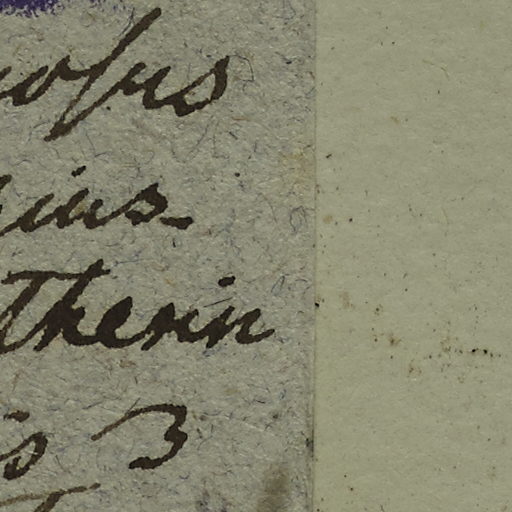 osus
ius-
Therin
is 3